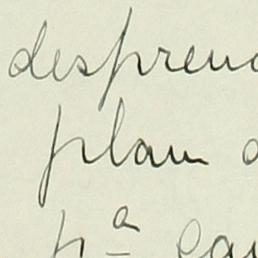 desprend
plan d
pª